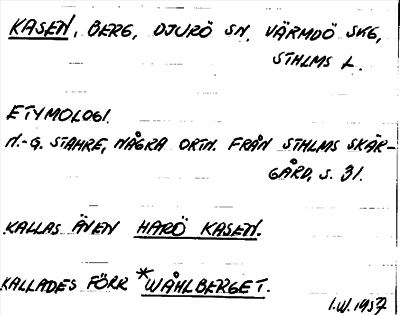 KASEN, BERG, DJURÖ SN, VÄRMDÖ SKG,
STHLMS L.
ETYMOLOGI.
N.-G. STAHRE, NÅGRA ORTN. FRÅN STHLMS SKÄR-
GÅRD, S. 31.
KALLAS ÄVEN HARÖ KASEN.
KALLADES FÖRR *WÅHLBERGET.
I.W. 1957